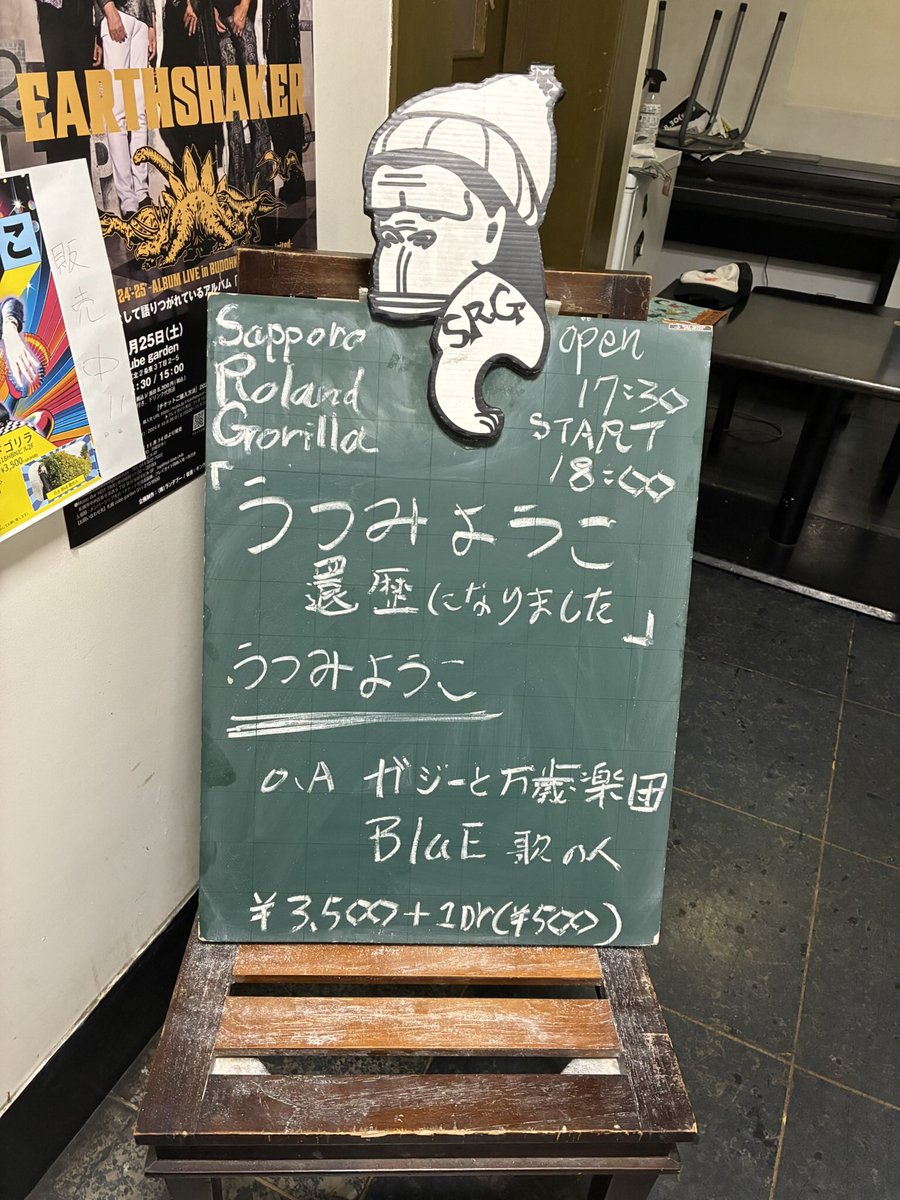 EARTHSHAKER
こ
販売中!!
'24-'25 -ALBUM LIVE in BUDOHK
して語りつがれているアルバム
月25日(土)
ube garden
:30 / 15:00
ゴリラ
¥3,500
SRG
Sapporo
Roland
Gorilla
open
17:30
START
18:00
「うつみようこ
還歴になりました」
うつみようこ
O.A ガジーと万歳楽団
BluE 歌の人
¥3,500+1Dr(¥500)